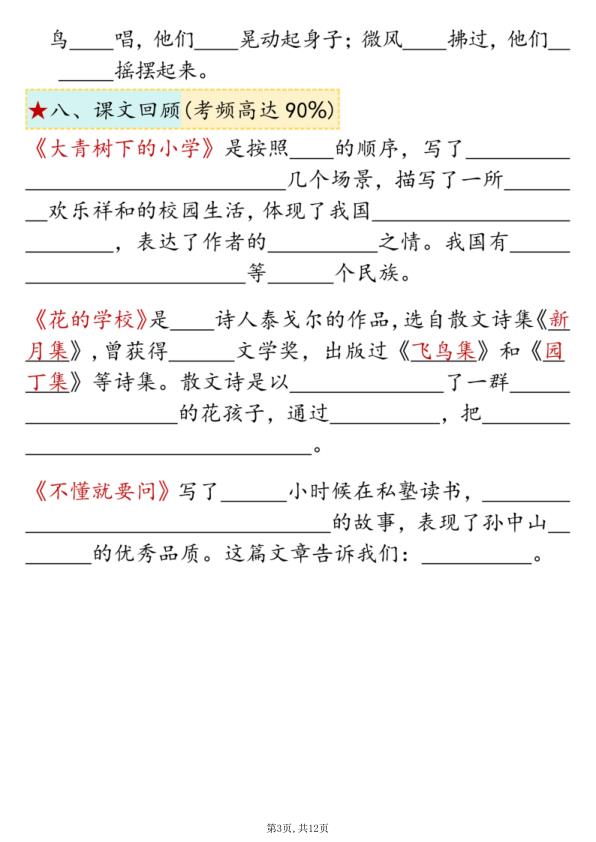 鸟____唱，他们____晃动起身子；微风____拂过，他们__
_____摇摆起来。
★八、课文回顾(考频高达 90%)
《大青树下的小学》是按照____的顺序，写了__________
________________________几个场景，描写了一所______
__欢乐祥和的校园生活，体现了我国__________________
________，表达了作者的__________之情。我国有______
____________________等______个民族。
《花的学校》是____诗人泰戈尔的作品，选自散文诗集《新
月集》，曾获得______文学奖，出版过《飞鸟集》和《园
丁集》等诗集。散文诗是以______________了一群______
______________的花孩子，通过__________，把________
__________________________。
《不懂就要问》写了______小时候在私塾读书，________
____________________________的故事，表现了孙中山__
______的优秀品质。这篇文章告诉我们：__________。
第3页，共12页